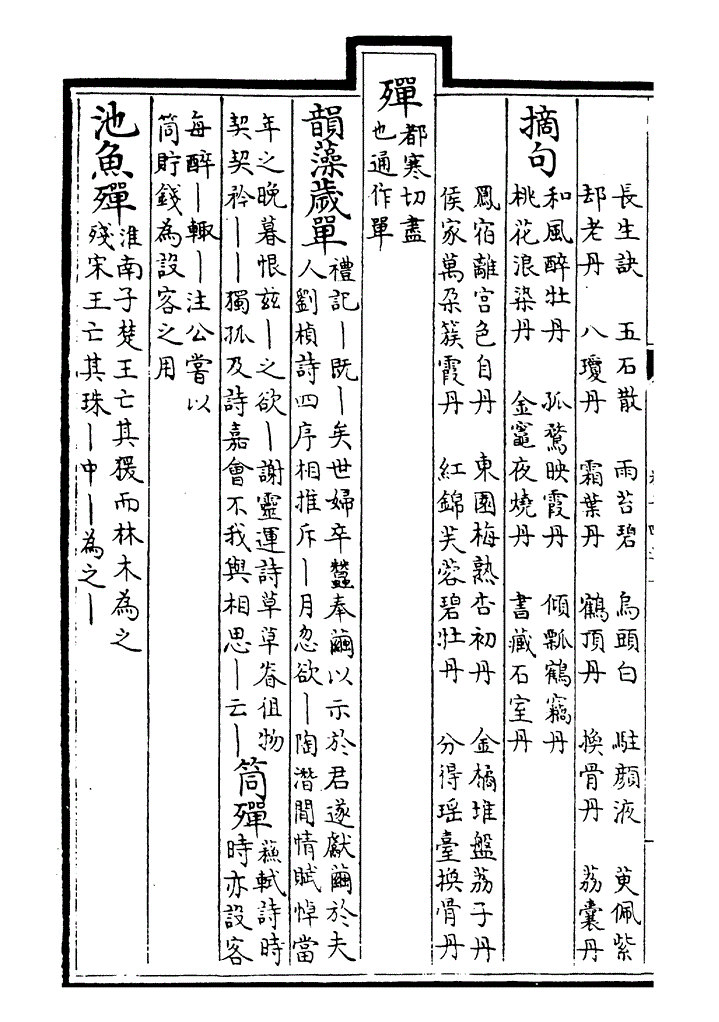 長生訣　五石散　雨苔碧　烏頭白　駐顔液　萸佩紫
卻老丹　八瓊丹　霜葉丹　鶴頂丹　換骨丹　荔囊丹
摘句
和風醉牡丹　孤鶩映霞丹　傾瓢鶴竊丹
桃花浪染丹　金竈夜燒丹　書藏石室丹
鳳宿離宫色自丹　東園梅熟杏初丹　金橘堆盤荔子丹
侯家萬朶簇霞丹　紅錦芙蓉碧牡丹　分得瑶臺換骨丹
殫
都寒切盡
也通作單
韻藻歲單
禮記丨既丨矣世婦卒蠶奉繭以示於君遂獻繭於夫
人劉楨詩四序相推斥丨月忽欲丨陶潛閒情賦悼當
年之晚暮恨兹丨之欲丨謝靈運詩草草眷徂物
契契矜丨丨獨孤及詩嘉會不我與相思丨云丨
筒殫
蘇軾詩時
時亦設客
每醉丨輒丨注公嘗以
筒貯錢為設客之用
池魚殫
淮南子楚王亡其猨而林木為之
殘宋王亡其珠丨中丨為之丨